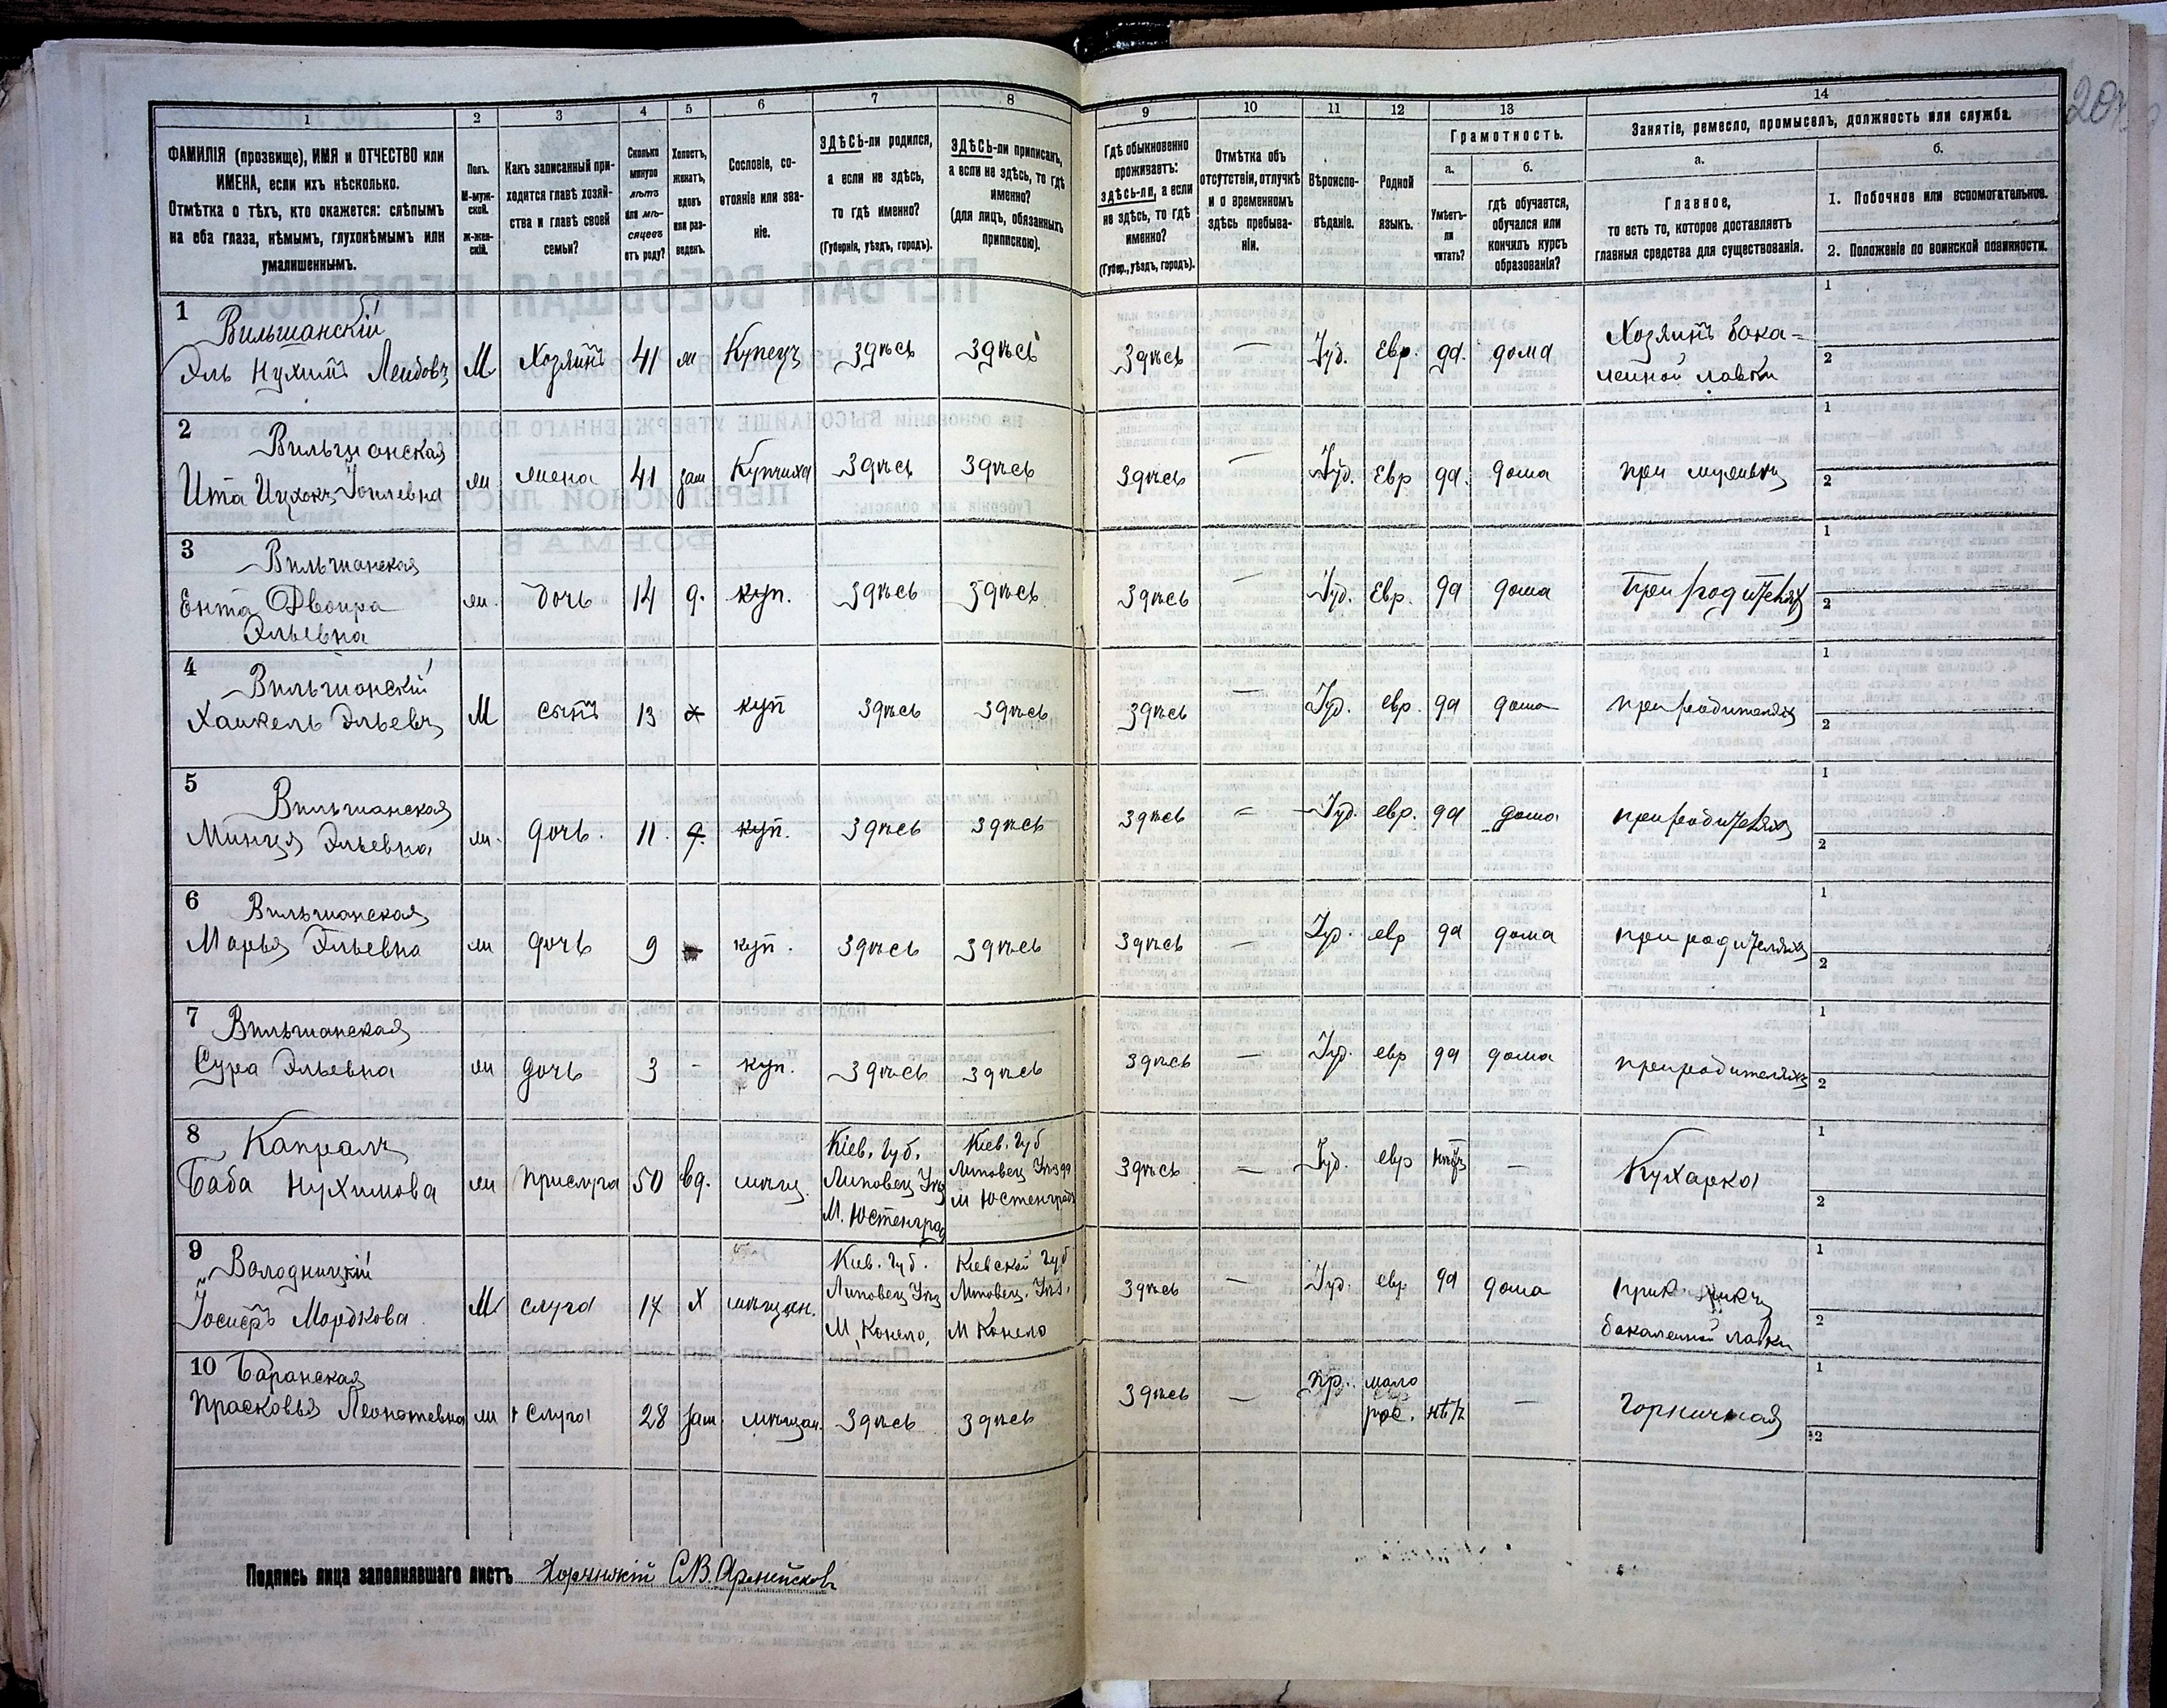 1 2 3 4 5 6 7 8 9 10 11 12 13 14
ФАМИЛІЯ (прозвище), ИМЯ и ОТЧЕСТВО или
ИМЕНА, если ихъ нѣсколько.
Отмѣтка о тѣхъ, кто окажется: слѣпымъ
на оба глаза, нѣмымъ, глухонѣмымъ или
умалишеннымъ.
Полъ.
М-муж-
ской.
Ж-жен-
скій.
Какъ записанный при-
ходится главѣ хозяй-
ства и главѣ своей
семьи?
Сколько
минуло
лѣтъ
или мѣ-
сяцевъ
отъ роду?
Холостъ,
женатъ,
вдовъ
или раз-
веденъ.
Сословіе, со-
стояніе или зва-
ніе.
ЗДѢСЬ-ли родился,
а если не здѣсь,
то гдѣ именно?
(Губернія, уѣздъ, городъ).
ЗДѢСЬ-ли приписанъ,
а если не здѣсь, то гдѣ
именно?
(для лицъ, обязанныхъ
припискою).
Гдѣ обыкновенно
проживаетъ:
здѣсь-ли, а если
не здѣсь, то гдѣ
именно?
(Губер., уѣздъ, городъ).
Отмѣтка объ
отсутствіи, отлучкѣ
и о временномъ
здѣсь пребыва-
ніи.
Вѣроиспо-
вѣданіе.
Родной
языкъ.
Грамотность.
а.
Умѣетъ-
ли
читать?
б.
гдѣ обучается,
обучался или
кончилъ курсъ
образованія?
Занятіе, ремесло, промыселъ, должность или служба.
а.
Главное,
то есть то, которое доставляетъ
главныя средства для существованія.
б.
1. Побочное или вспомогательное.
2. Положеніе по воинской повинности.
1 Вильшанскій
Эль Нухимъ Лейбовъ М Хозяинъ 41 ж Купецъ Здѣсь Здѣсь Здѣсь — Іуд. Евр. да. дома Хозяинъ бака=
лейной лавки
1
2
2 Вильшанская
Ита Ицхокъ Іоилевна ж жена 41 зам Купчиха Здѣсь Здѣсь Здѣсь — Іуд. Евр да. дома при мужѣ
1
2
3 Вильшанская
Ента Двойра
Эльевна ж. дочь 14 д. куп. Здѣсь Здѣсь Здѣсь — Іуд. Евр. да дома При родителяхъ
1
2
4 Вильшанскій
Хаикель Эльевъ М сынъ 13 х куп Здѣсь Здѣсь Здѣсь — Іуд. евр. да дома при родителяхъ
1
2
5 Вильшанская
Минця Эльевна ж. дочь. 11. д. куп. Здѣсь Здѣсь Здѣсь — Іуд. евр. да дома при родителяхъ
1
2
6 Вильшанская
Марья Эльевна ж дочь 9 куп. Здѣсь Здѣсь Здѣсь — Іуд. евр да дома при родителяхъ
1
2
7 Вильшанская
Сура Эльевна ж дочь 3 - куп. Здѣсь Здѣсь Здѣсь — Іуд. евр да дома при родителяхъ
1
2
8 Капралъ
Баба Нухимова ж Прислуга 50 вд. мѣщ.
Кіев. Губ.
Липовец Уѣз
М. Юстенград
Кіев. Губ
Липовец Уѣзда
М Юстенградъ
Здѣсь — Іуд. евр нѣтъ — Кухарка
1
2
9 Володницкій
Іосифъ Мордкова М слуга 17 Х мѣщан.
Кіев. Губ.
Липовец Уѣз
М. Конела,
Кіевской Губ
Липовец. Уѣз.
М Конела
Здѣсь — Іуд. евр да дома
бакалейной лавки
1
2
10 Баранская
Прасковья ж слуга 28 зам. мѣщан. Здѣсь Здѣсь Здѣсь — пр. мало
рос. нѣтъ — Горничная
1
2
Подпись лица заполнявшаго листъ